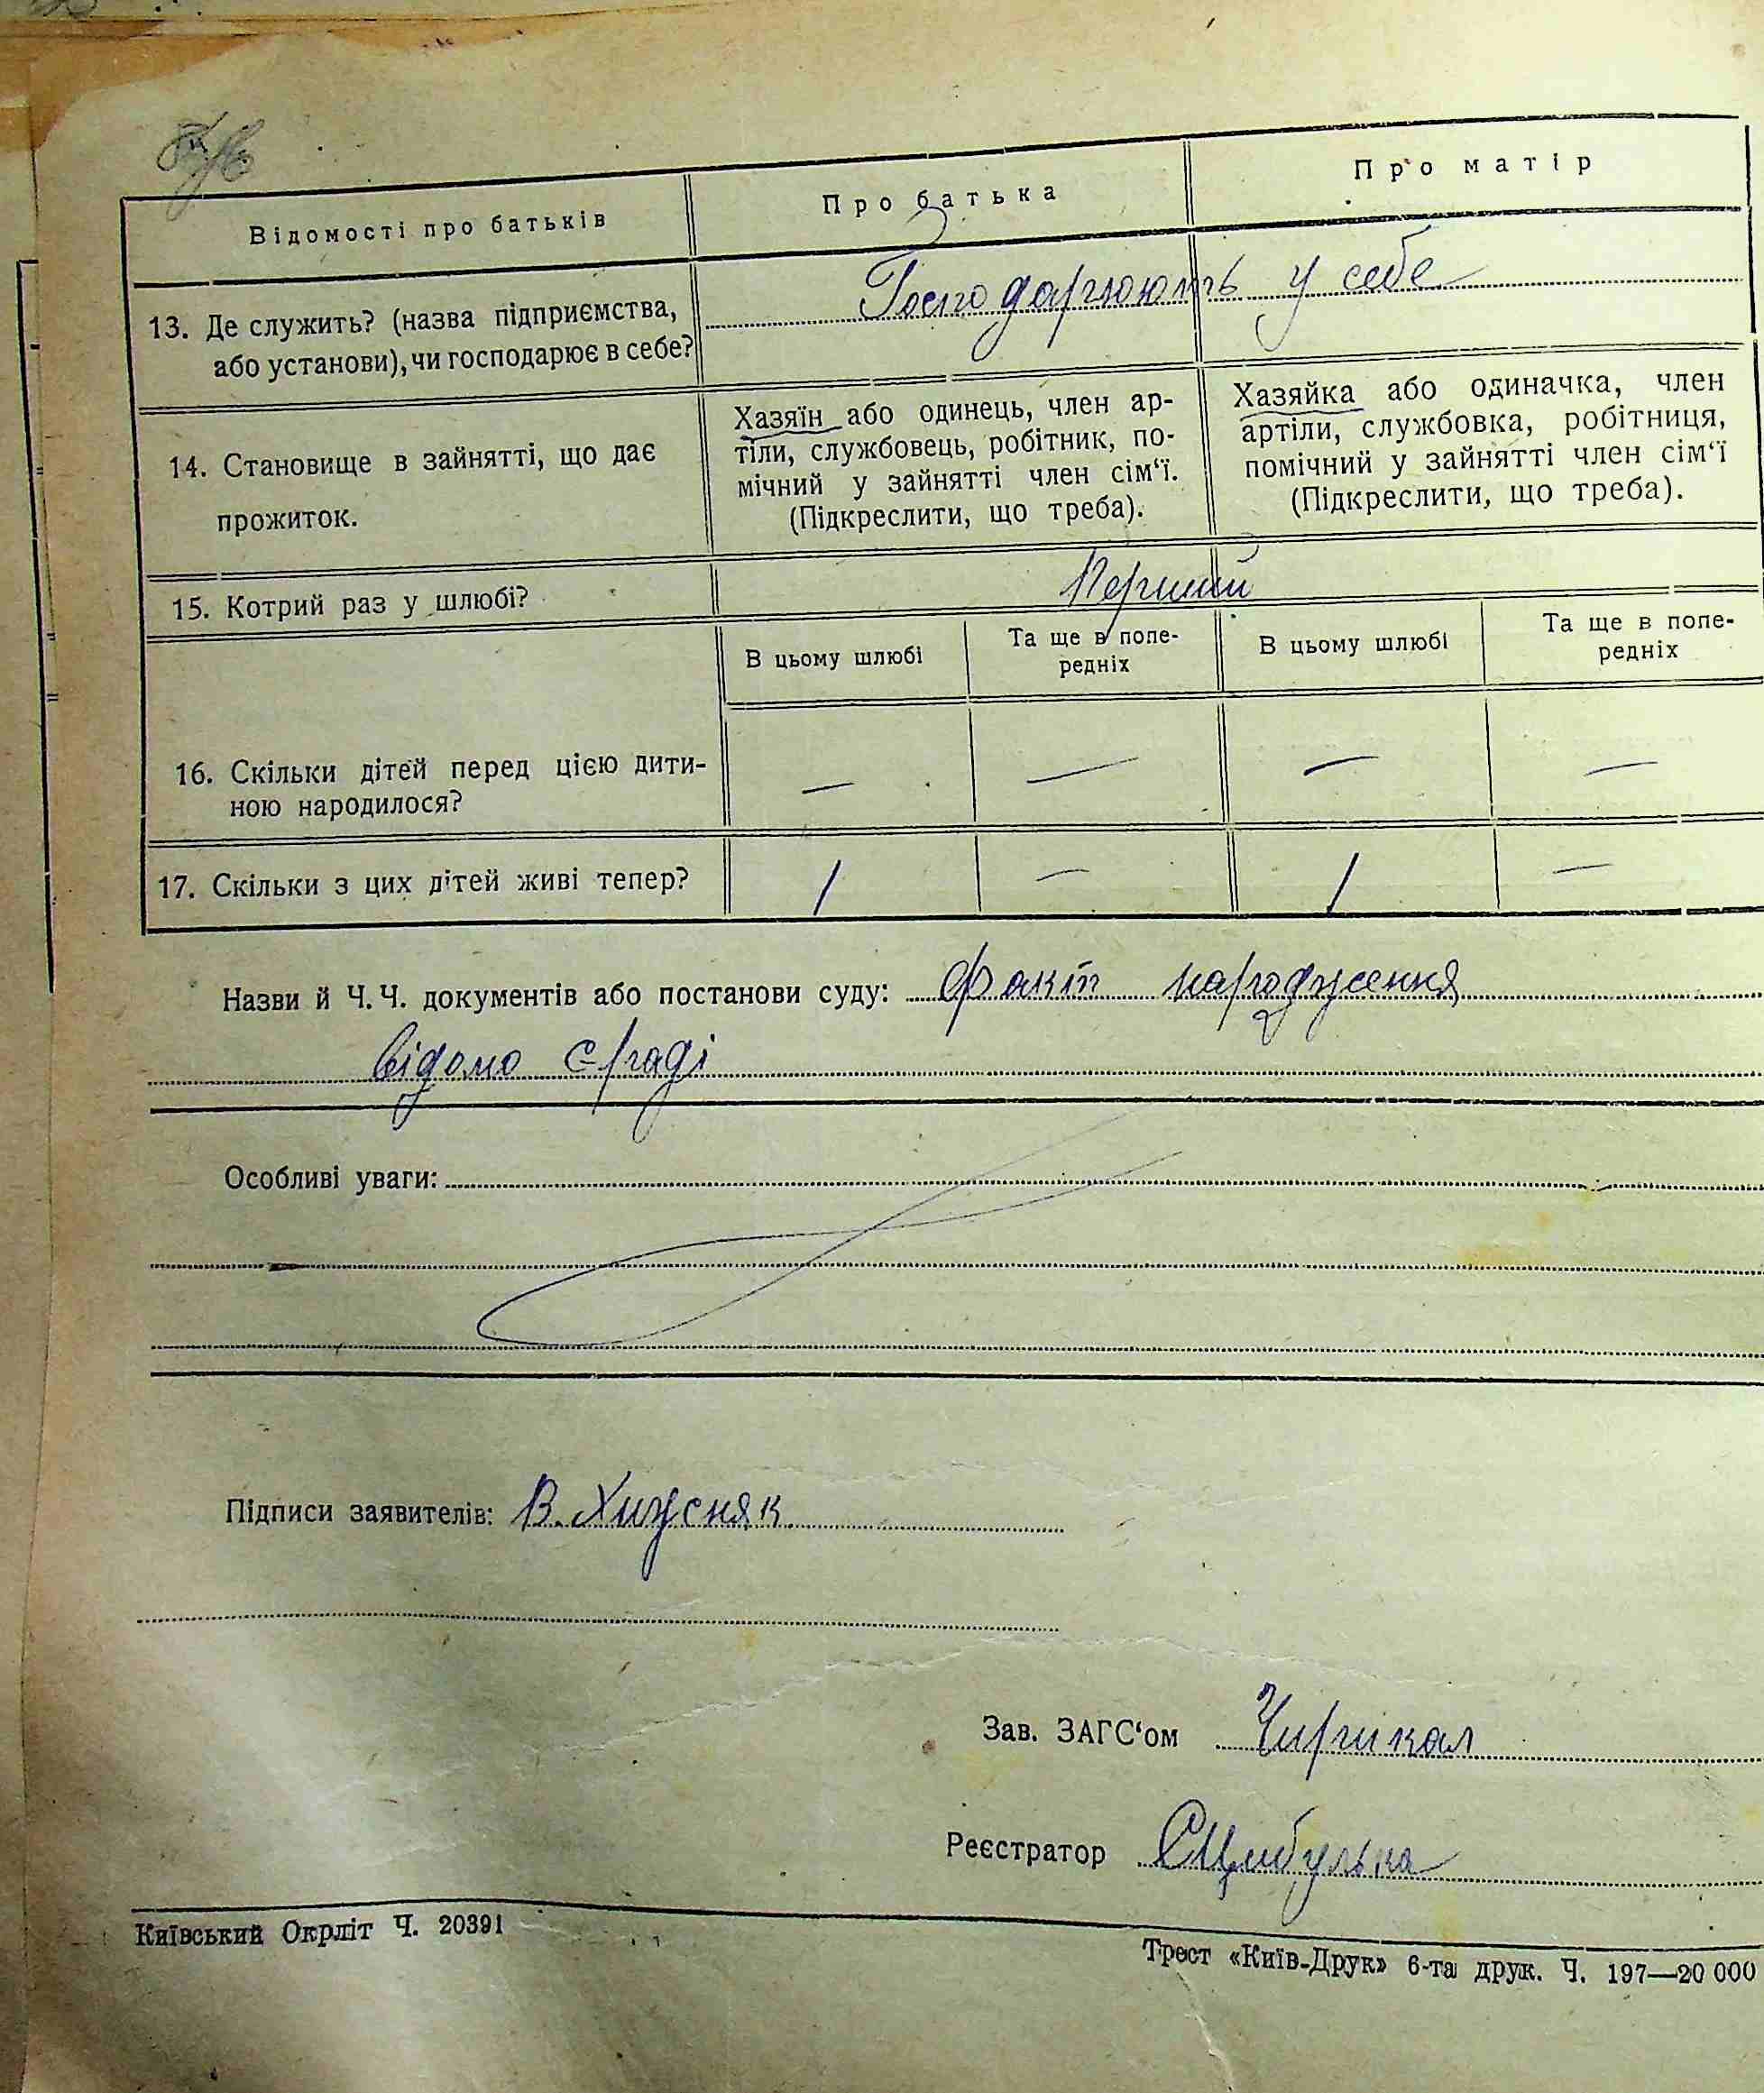 Відомості про батьків
Про батька
Про матір
13. Де служить? (назва підприємства,
або установи), чи господарює в себе?
Господарюють у себе
14. Становище в зайнятті, що дає
прожиток.
Хазяїн або одинець, член ар-
тіли, службовець, робітник, по-
мічний у зайнятті член сім‘ї.
(Підкреслити, що треба).
Хазяйка або одиначка, член
артіли, службовка, робітниця,
помічний у зайнятті член сім‘ї
(Підкреслити, що треба).
15. Котрий раз у шлюбі?
Перший
В цьому шлюбі
Та ще в попе-
редніх
В цьому шлюбі
Та ще в попе-
редніх
16. Скільки дітей перед цією дити-
ною народилося?
— — — —
17. Скільки з цих дітей живі тепер?
1 — 1 —
Назви й Ч. Ч. документів або постанови суду: Факт народження
відомо с/раді
Особливі уваги:
Підписи заявителів: В.
Зав. ЗАГС‘ом
Реєстратор Цибулька
Київський Окрліт Ч. 20391
Трест «Київ-Друк» 6-та друк. Ч. 197—20 000